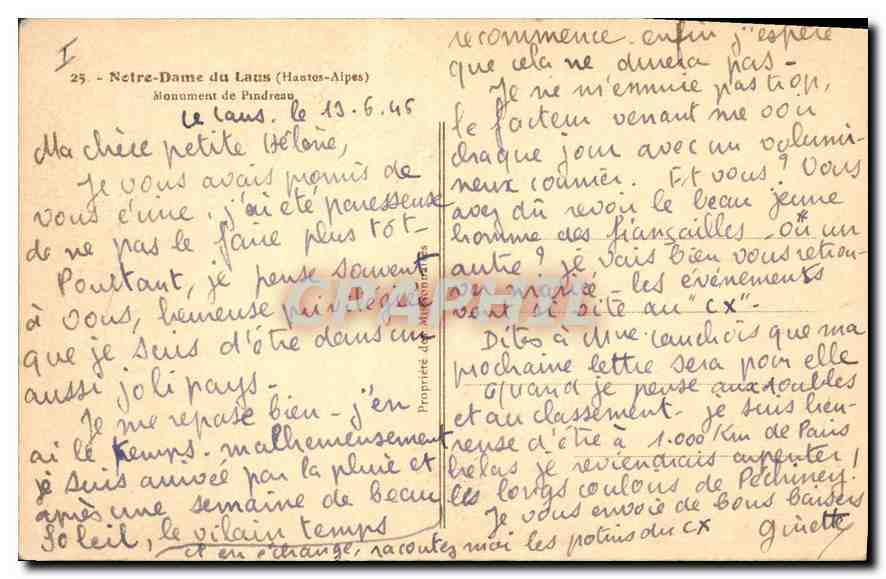 I
25. - Notre-Dame du Laus (Hautes-Alpes)
Monument de Pindreau
Le Laus. le 13.6.46
Ma chère petite Hélène,
Je vous avais promis de
vous écrire, j'ai été paresseuse
de ne pas le faire plus tôt -
Pourtant, je pense souvent
à vous, heureuse privilégiée
que je suis d'être dans un
aussi joli pays -
Je me repose bien - j'en
ai le temps. malheureusement
je suis arrivée par la pluie et
après une semaine de beau
Soleil, le vilain temps
recommence. enfin j'espère
que cela ne durera pas -
Je ne m'ennuie pas trop,
le facteur venant me voir
chaque jour avec un volumi-
neux courrier. Et vous ? Vous
avez dû revoir le beau jeune
homme des fiançailles - où un
autre ? je vais bien vous retrou-
ver mariée - les événements
vont si vite au "CX" -
Dites à Mme Cauchois que ma
prochaine lettre sera pour elle
Quand je pense aux doubles
et au classement - je suis heu-
reuse d'être à 1.000 Km de Paris
hélas je reviendrais arpenter,
les longs couloirs de Péchiney.
Je vous envoie de bons baisers
Ginette
et en échange, racontez moi les potins du CX
Propriété des Missionnaires
CAPHIL